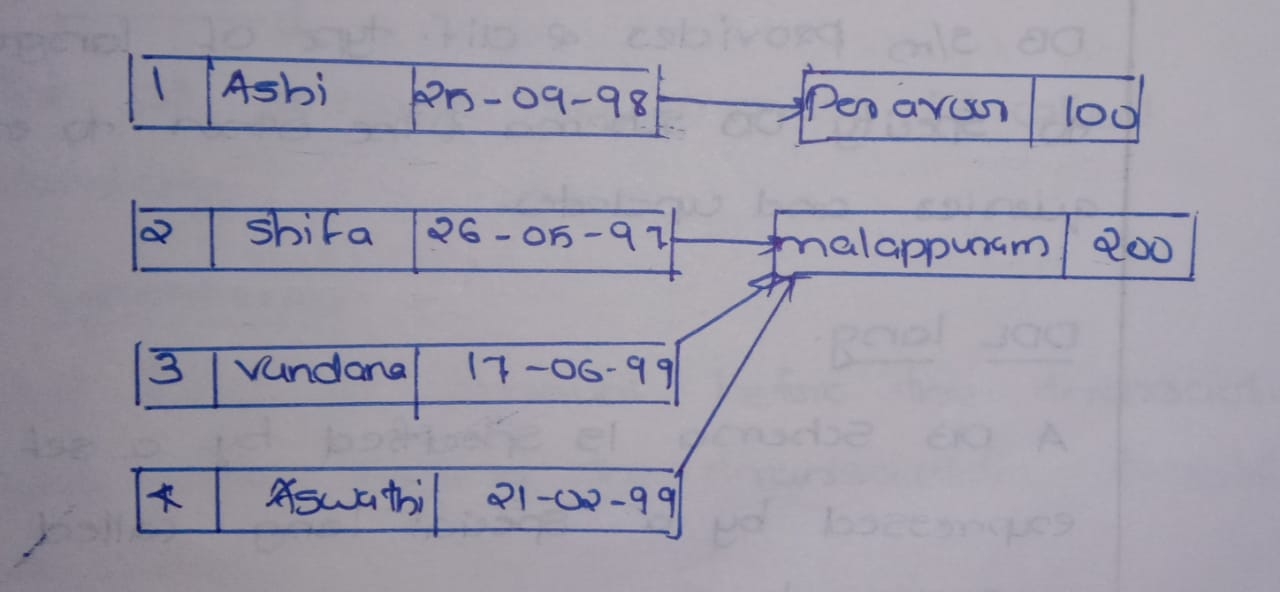 1 Ashi 25-09-98 100
2 Shifa 26-05-97 malappuram 200
3 Vandana 17-06-99
4 Aswathi 21-02-99